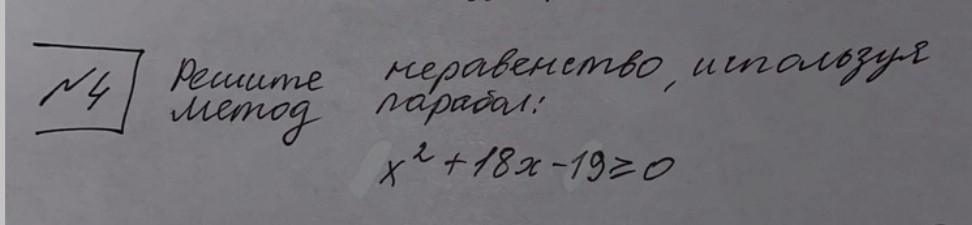 №4
Решите неравенство, используя
метод парабол:
x² + 18x - 19 ≥ 0